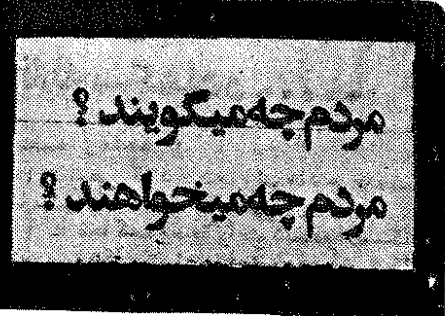 مردم چه میگویند ؟
مردم چه میخواهند ؟